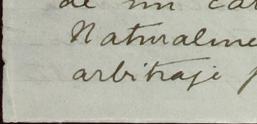 de un car
Naturalme
arbitraje p